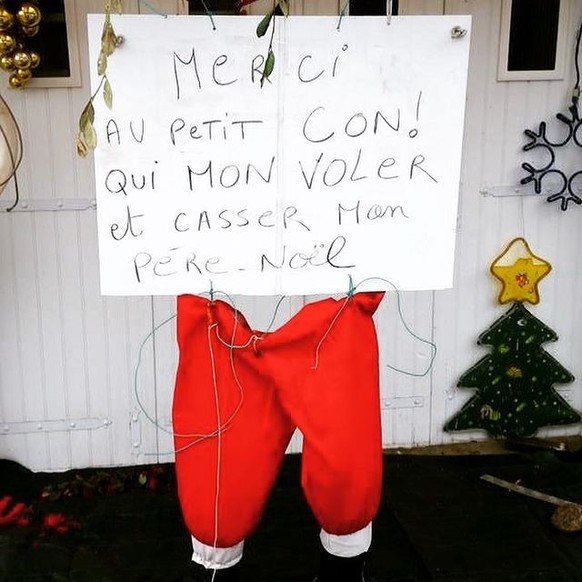 Merci
AU PETIT CON!
QUI MON VOLER
et CASSER Mon
PÉRE-NOËL